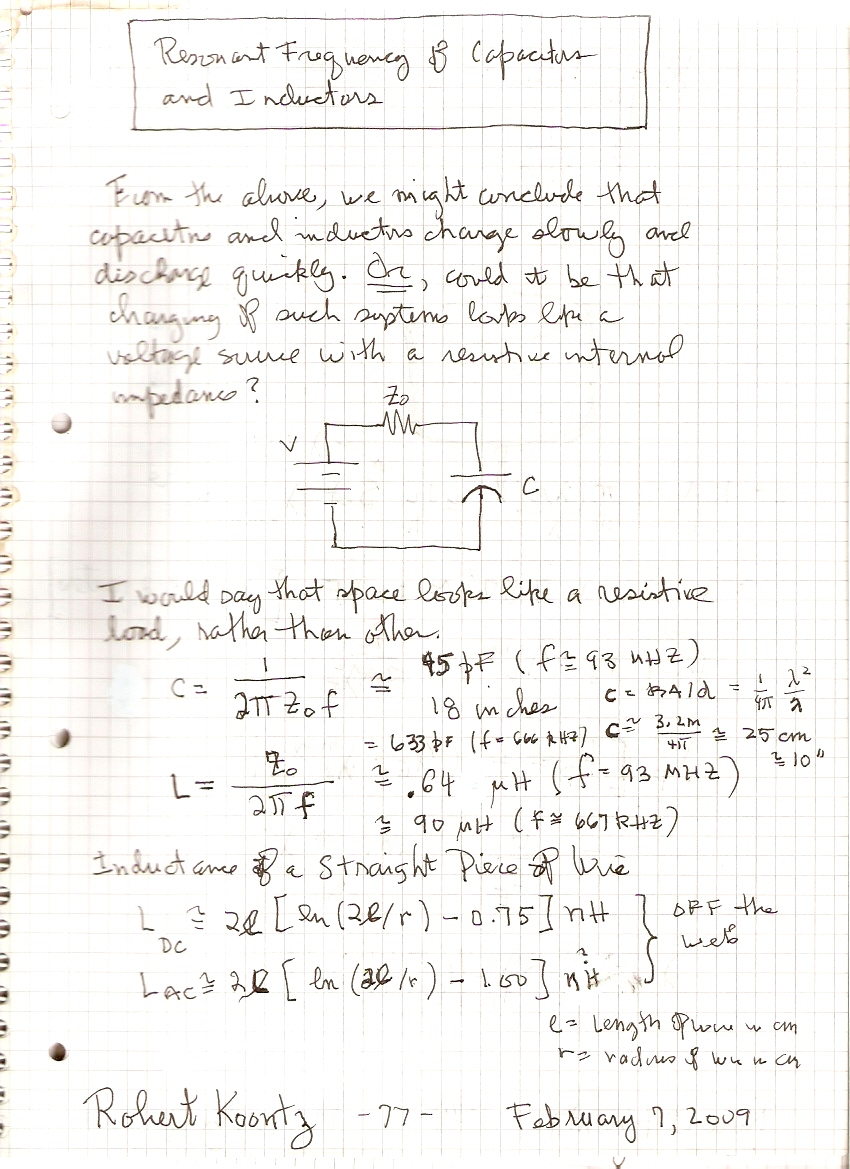 Resonant Frequency of Capacitors
and Inductors
From the above, we might conclude that
capacitors and inductors charge slowly and
discharge quickly. Or, could it be that
charging of such systems looks like a
voltage source with a resistive internal
impedance?
Z₀
V
C
I would say that space looks like a resistive
load, rather than other.
C = 1 / 2π Z₀ f ≅ 45 pF (f ≅ 93 MHZ)
18 inches C = κA/d = 1/4π λ²/λ
= 633 pF (f = 666 KHZ) C ≅ 3.2m/4π ≅ 25 cm
≅ 10"
L = Z₀ / 2π f ≅ .64 μH (f = 93 MHZ)
≅ 90 μH (f ≅ 667 KHZ)
Inductance of a Straight Piece of Wire
L DC ≅ 2ℓ [ln(2ℓ/r) - 0.75] nH } OFF the
web
L AC ≅ 2ℓ [ln(2ℓ/r) - 1.00] nH ?
ℓ = Length of wire in cm
r = radius of wire in cm
Robert Koontz -77- February 7, 2009